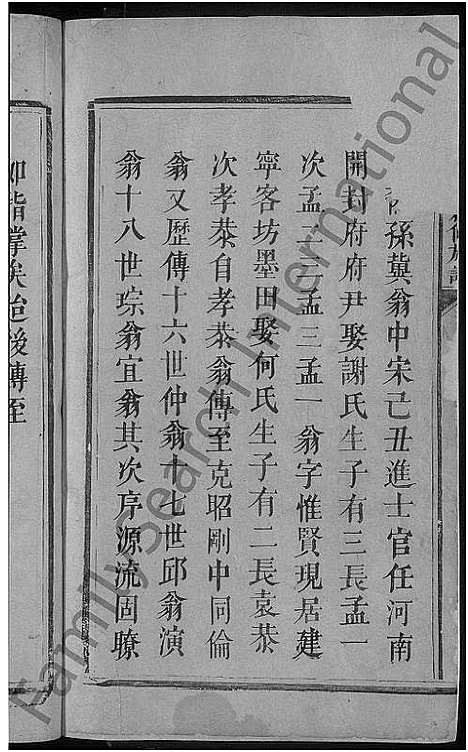 孫冀翁中宋己丑進士官任河南
開封府府尹娶謝氏生子有三長孟一
次孟二三孟三孟一翁字惟賢現居建
寧客坊墨田娶何氏生子有二長袁恭
次孝恭自孝恭翁傳至克昭剛中同倫
翁又歷傳十六世仲翁十七世邱翁演
翁十八世琮翁宜翁其次序源流固瞭
如指掌矣迨後傳至
FamilySearch International